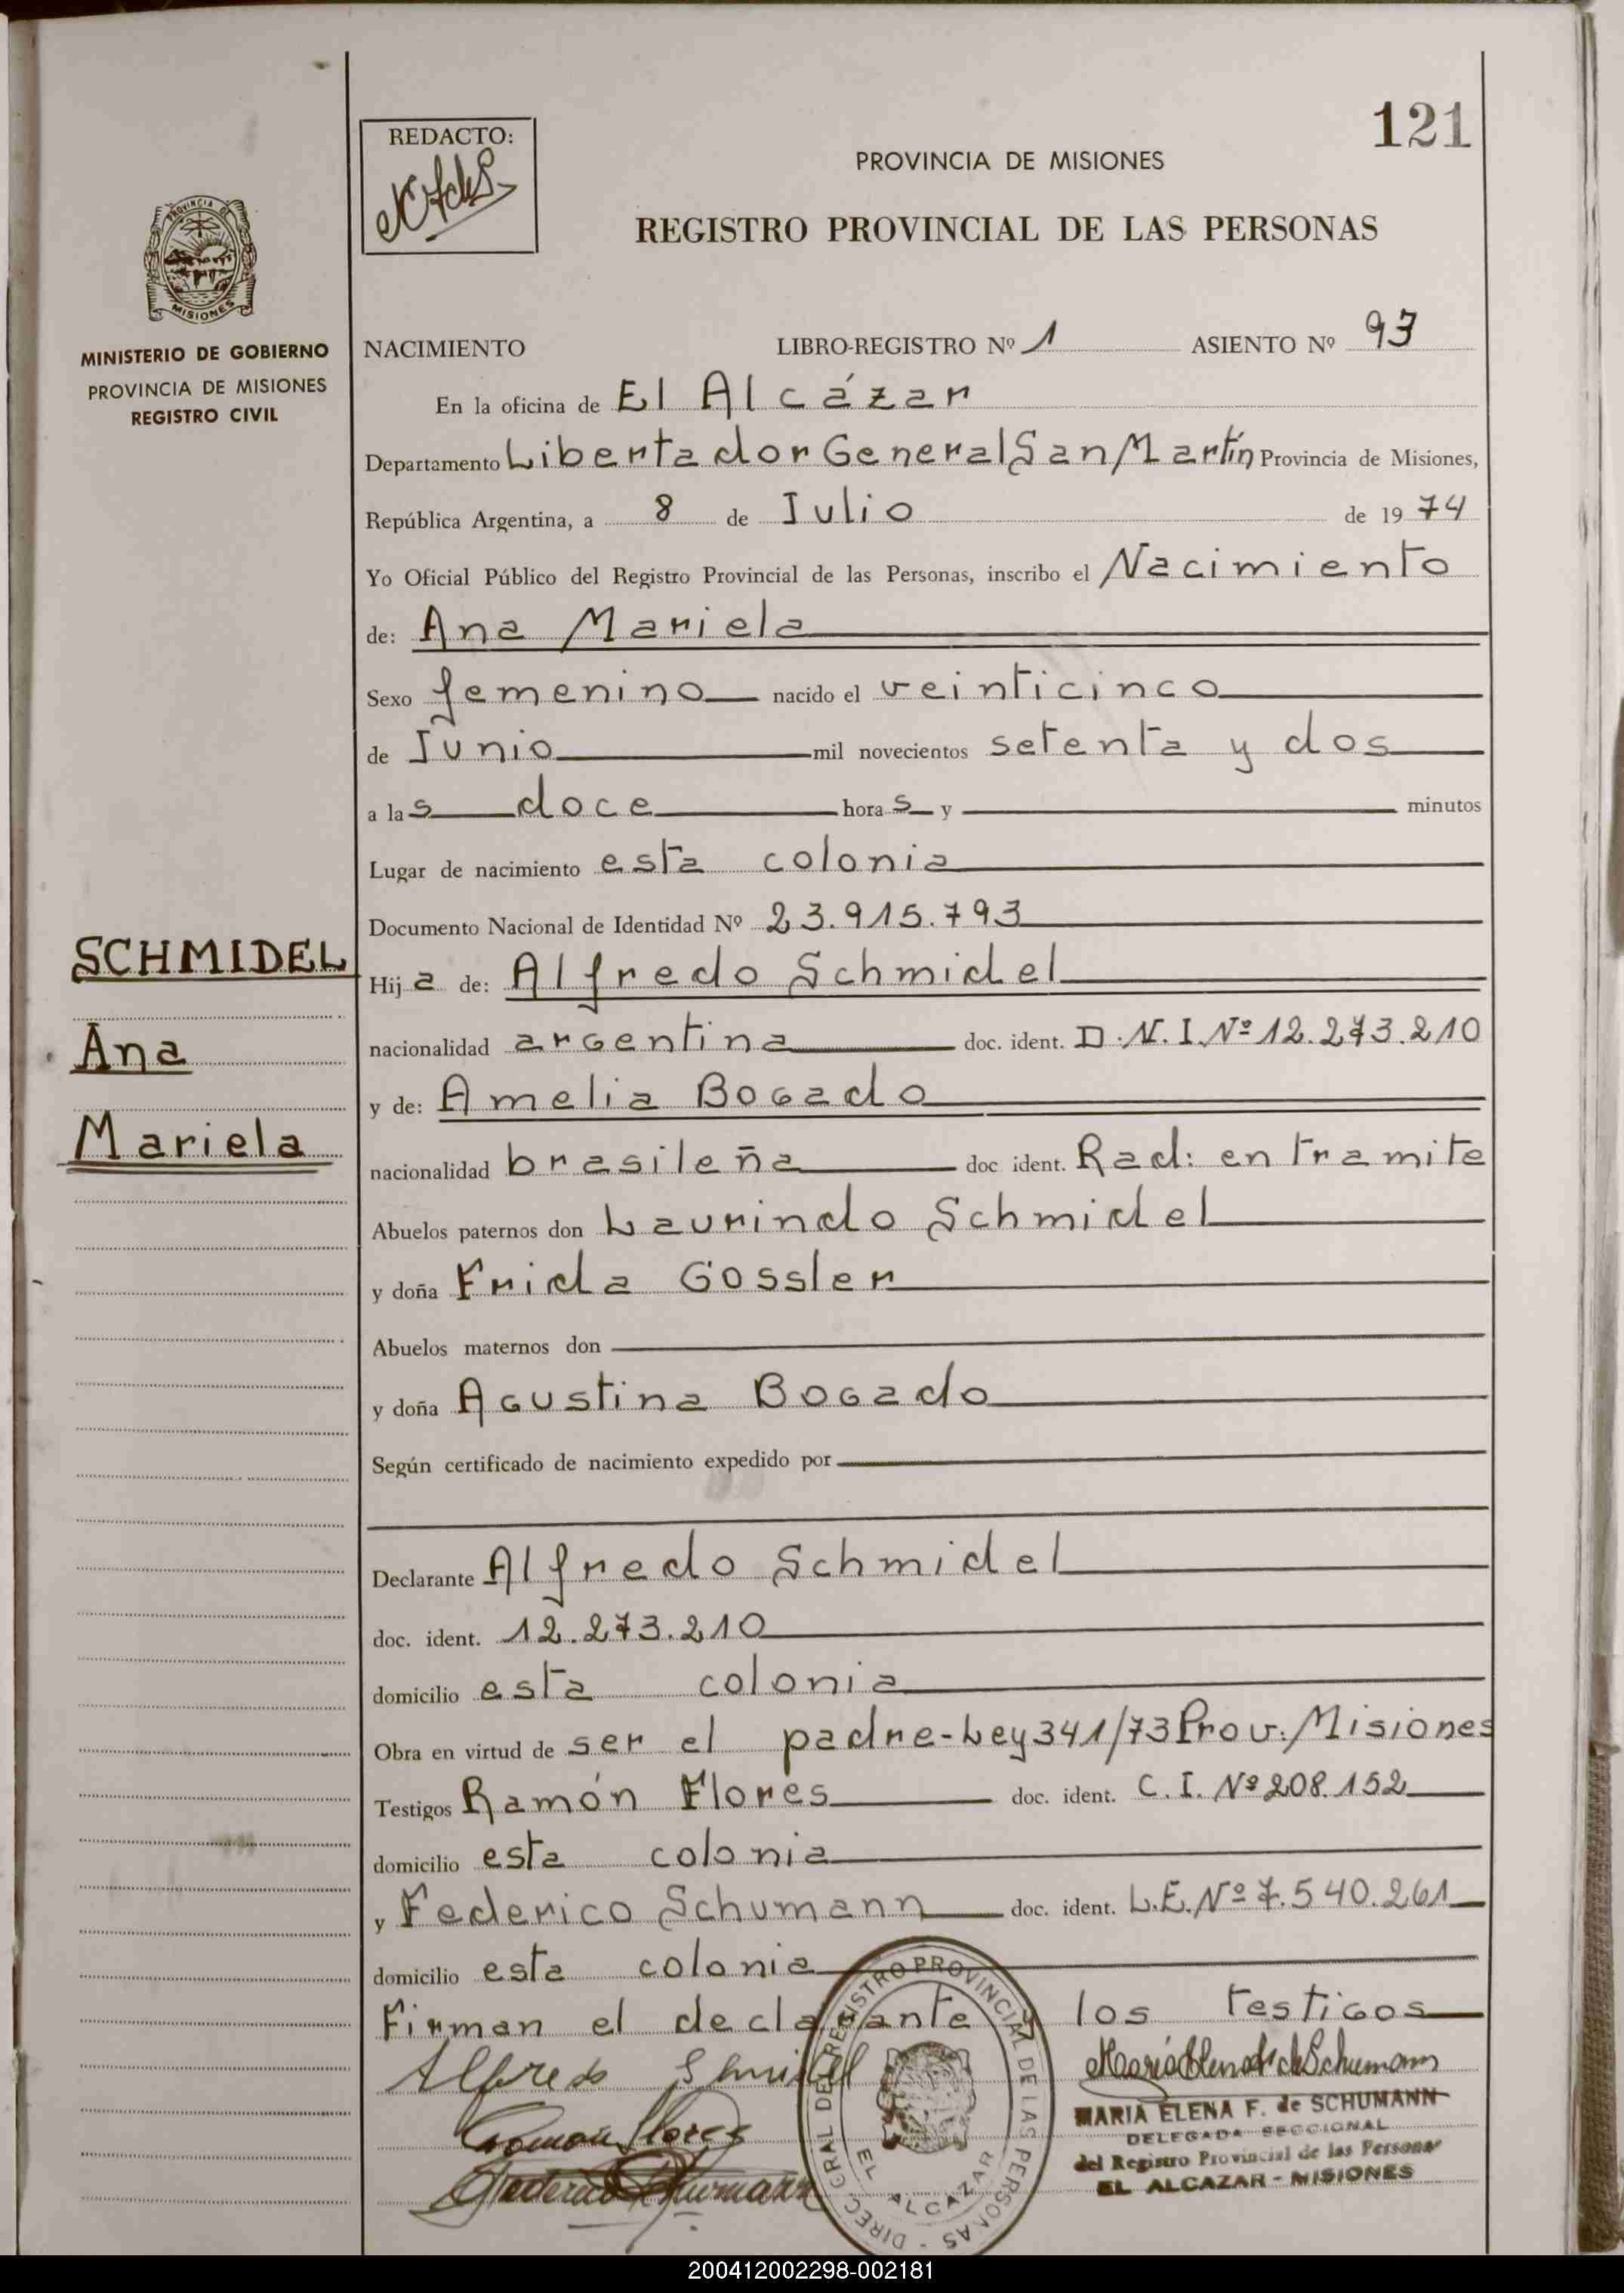 121
REDACTO:
PROVINCIA DE MISIONES
REGISTRO PROVINCIAL DE LAS PERSONAS
PROVINCIA DE
MISIONES
MINISTERIO DE GOBIERNO
PROVINCIA DE MISIONES
REGISTRO CIVIL
NACIMIENTO LIBRO-REGISTRO Nº 1 ASIENTO Nº 93
En la oficina de El Alcázar
Departamento Libertador General San Martín Provincia de Misiones,
República Argentina, a 8 de Julio de 1974
Yo Oficial Público del Registro Provincial de las Personas, inscribo el Nacimiento
de: Ana Mariela
Sexo femenino nacido el veinticinco
de Junio mil novecientos setenta y dos
a las doce horas y minutos
Lugar de nacimiento esta colonia
Documento Nacional de Identidad Nº 23.915.793
SCHMIDEL
Ana
Mariela
Hija de: Alfredo Schmidel
nacionalidad argentina doc. ident. D.N.I.Nº 12.273.210
y de: Amelia Bogado
nacionalidad brasileña doc ident. Rad: en tramite
Abuelos paternos don Laurindo Schmidel
y doña Frida Gossler
Abuelos maternos don
y doña Agustina Bogado
Según certificado de nacimiento expedido por
Declarante Alfredo Schmidel
doc. ident. 12.273.210
domicilio esta colonia
Obra en virtud de ser el padre-Ley 341/73 Prov: Misiones
Testigos Ramón Flores doc. ident. C.I. Nº 208.152
domicilio esta colonia
y Federico Schumann doc. ident. L.E. Nº 7.540.261
domicilio esta colonia
Firman el declarante y los testigos
Alfredo Shmidel
Ramon Flores
Federico Schumann
DIREC. GRAL DE REGISTRO PROVINCIAL DE LAS PERSONAS -
EL ALCAZAR
María Elena F. de Schumann
MARIA ELENA F. de SCHUMANN
DELEGADA SECCIONAL
del Registro Provincial de las Personas
EL ALCAZAR - MISIONES
200412002298-002181